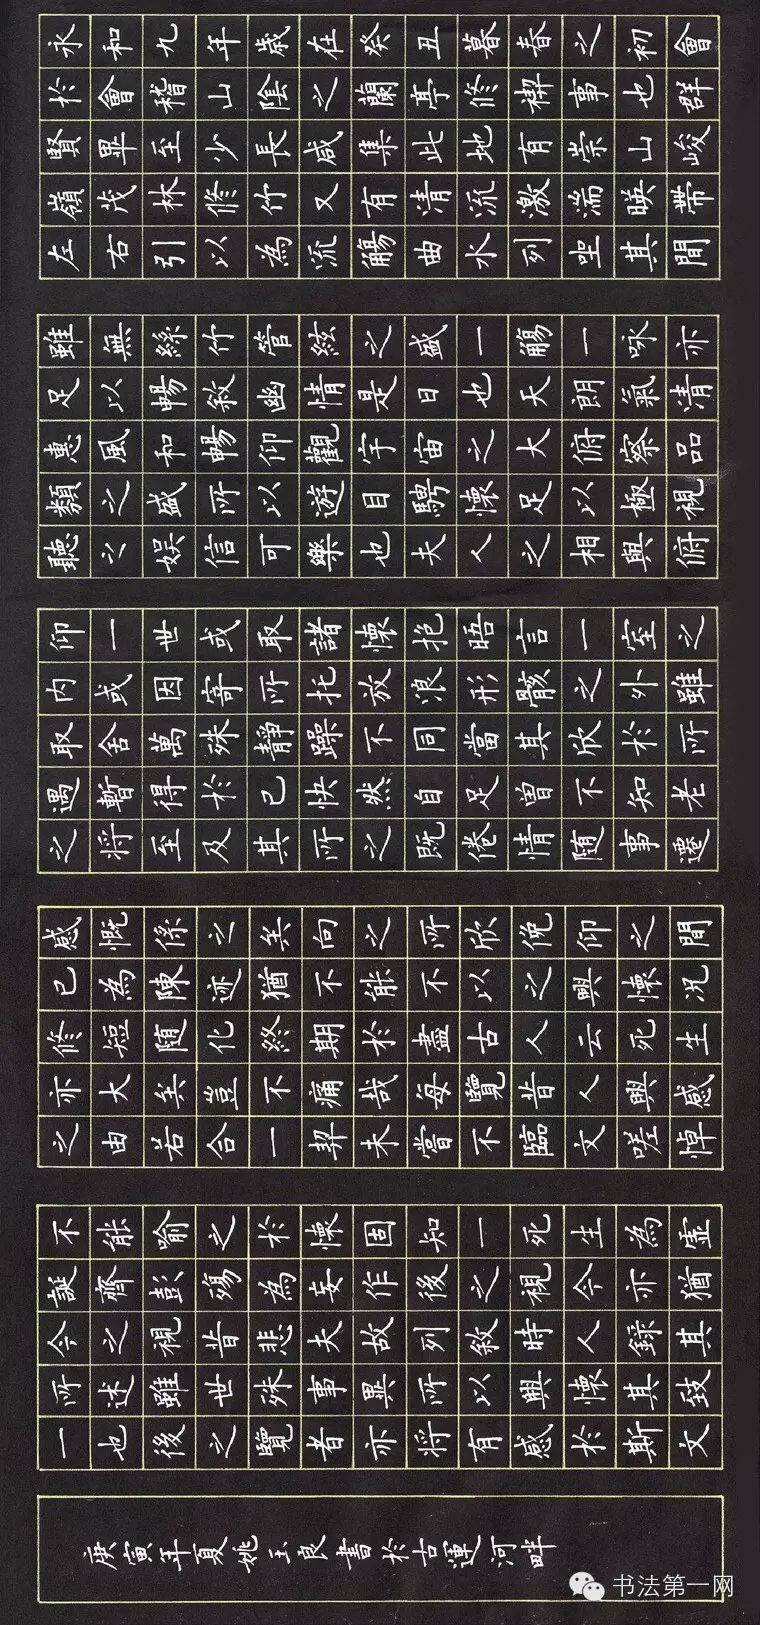 永和九年歲在癸丑暮春之初會
於會稽山陰之蘭亭修禊事也群
賢畢至少長咸集此地有崇山峻
嶺茂林修竹又有清流激湍暎帶
左右引以為流觴曲水列坐其間
雖無絲竹管絃之盛一觴一咏亦
足以暢敘幽情是日也天朗氣清
惠風和暢仰觀宇宙之大俯察品
類之盛所以遊目騁懷足以極視
聽之娛信可樂也夫人之相與俯
仰一世或取諸懷抱晤言一室之
內或因寄所托放浪形骸之外雖
取舍萬殊靜躁不同當其欣於所
遇暫得於己快然自足曾不知老
之將至及其所之既倦情随事遷
感慨係之矣向之所欣俛仰之間
已為陳迹猶不能不以之興懷況
修短随化終期於盡古人云死生
亦大矣豈不痛哉每覽昔人興感
之由若合一契未嘗不臨文嗟悼
不能喻之於懷固知一死生為虛
誕齊彭殤為妄作後之視今亦猶
今之視昔悲夫故列敘時人錄其
所述雖世殊事異所以興懷其致
一也後之覽者亦將有感於斯文
庚寅年夏姚玉良書於古運河畔
书法第一网